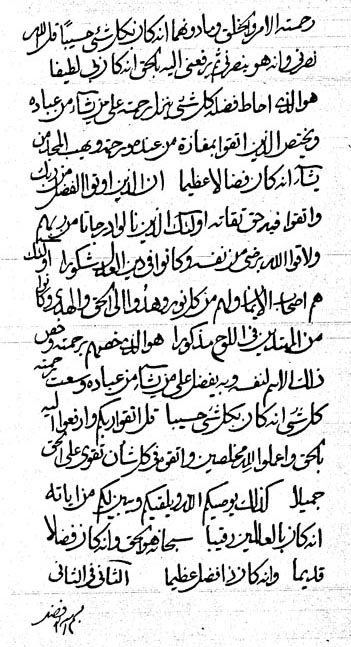 رحمته الامر والخلق وما دونهما انه كان بكل شئ حسيبا قل الله
نصرني وانه هو ينصرني ثم يرفعني اليه بالحق انه كان بي لطيفا
هو الذي احاط فضله كل شئ ينزل رحمته على من يشآء من عباده
ويختص الذين اتقوا بمفازة من عنده ورحمة ويهب المجد من
يشآء انه كان فضالا عظيما ان الذين اوتوا الفضل من ربك
واتقوا فيه حق تقاته اولئك الذين نالوا درجاتا من ربهم
ولاقوا الله برضى من نفسه وكانوا في دين الله شكورا اولئك
هم اصحاب الايمان ولهم من كل نور وهدوا الى الحق والهدى وكانوا
من المهتدين في اللوح مذكورا هو الذي يخصهم برحمته وخص
ذلك الاسم لنفسه وبه يفضل على من يشآء من عباده وسعت رحمته
كل شئ انه كان بكل شئ حسيبا قل اتقوا ربكم وارفعوا اليه
بالحق واعملوا لله مخلصين واتقوه في كل شأن تقوى على الحق
جميلا كذلك يوصيكم الله ويلقيكم ويبين لكم من اياته
انه كان بالعالمين رقيبا سبحانه هو الحق وانه كان فضالا
قديما وانه كان ذا فضل عظيما الثاني في الثاني